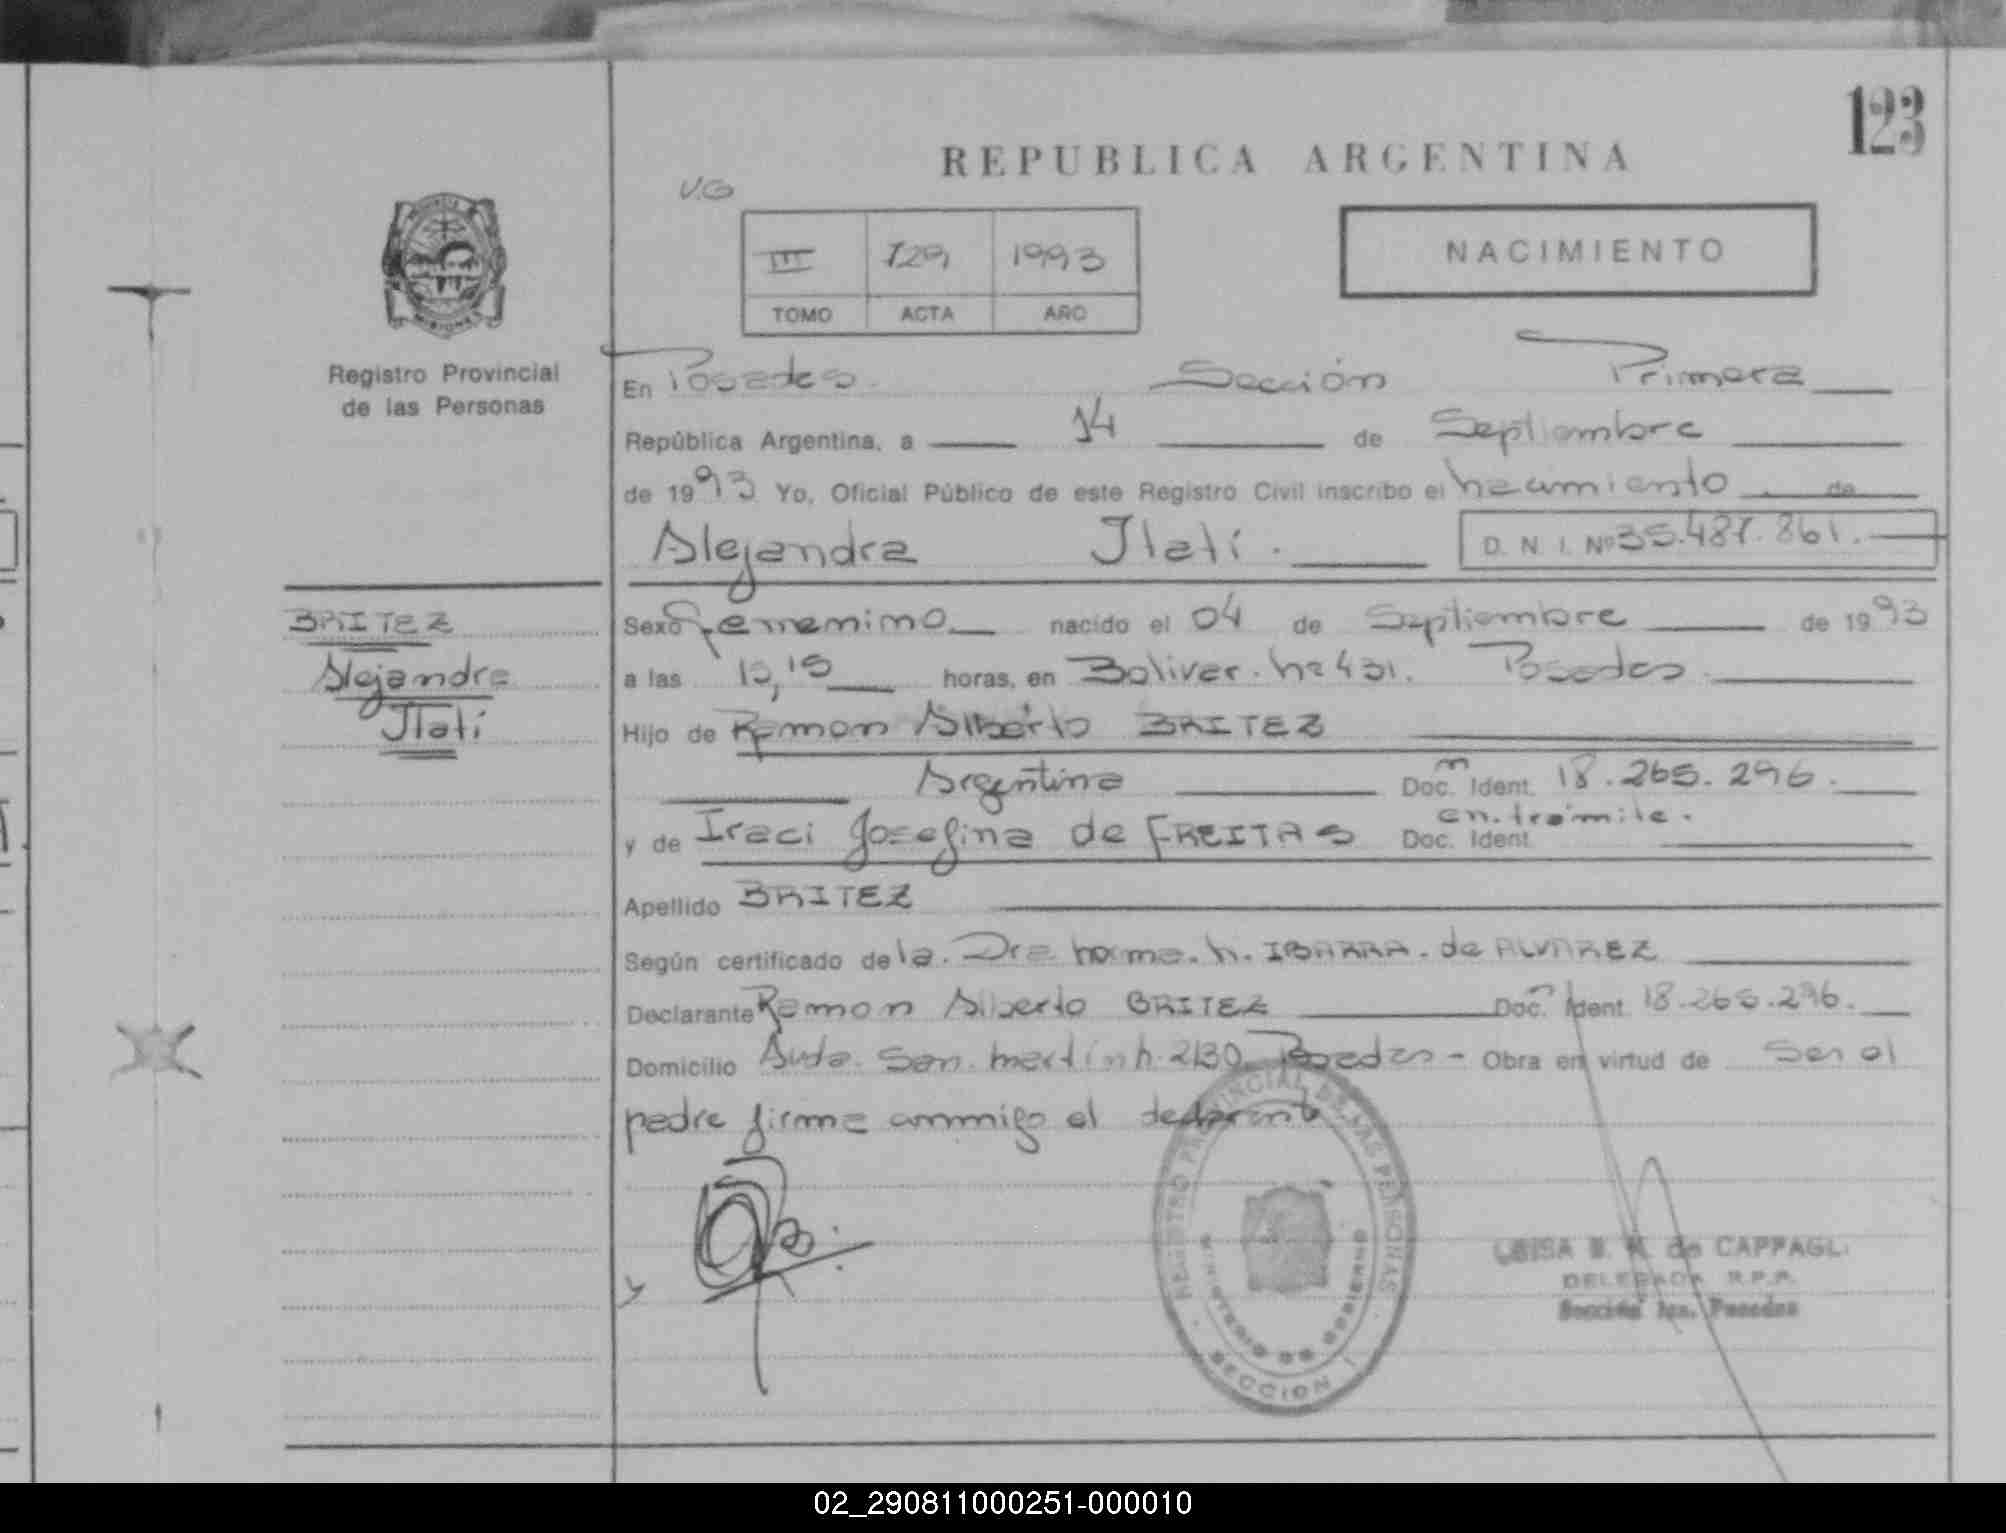 123
REPUBLICA ARGENTINA
V.G
III 729 1993
TOMO ACTA AÑO
NACIMIENTO
PROVINCIA
MISIONES
Registro Provincial
de las Personas
En Posadas. Sección Primera
República Argentina, a 14 de Septiembre
de 1993 Yo, Oficial Público de este Registro Civil inscribo el nacimiento de
Alejandra Itatí. D. N. I. Nº 35.487.861.
BRITEZ
Alejandra
Itatí
Sexo Femenino nacido el 04 de Septiembre de 1993
a las horas, en Bolivar. nº 431. Posadas.
Hijo de Ramon Alberto BRITEZ
Argentina Doc. Ident. m 18.265.296.
y de Iraci Josefina de FREITAS Doc. Ident. en. trámite.
Apellido BRITEZ
Según certificado de la. Dra Norma. N. IBARRA. de ALVAREZ
Declarante Ramon Alberto BRITEZ Doc. Ident. 18.265.296.
Domicilio Avda. San. Martín n. 2130 Posadas - Obra en virtud de ser el
padre firma conmigo el declarante
REGISTRO PROVINCIAL DE LAS PERSONAS
MINISTERIO DE GOBIERNO
SECCION 1
LUISA de CAPPAGLI
DELEGADA R.P.P.
Sección 1ra. Posadas
02_290811000251-000010